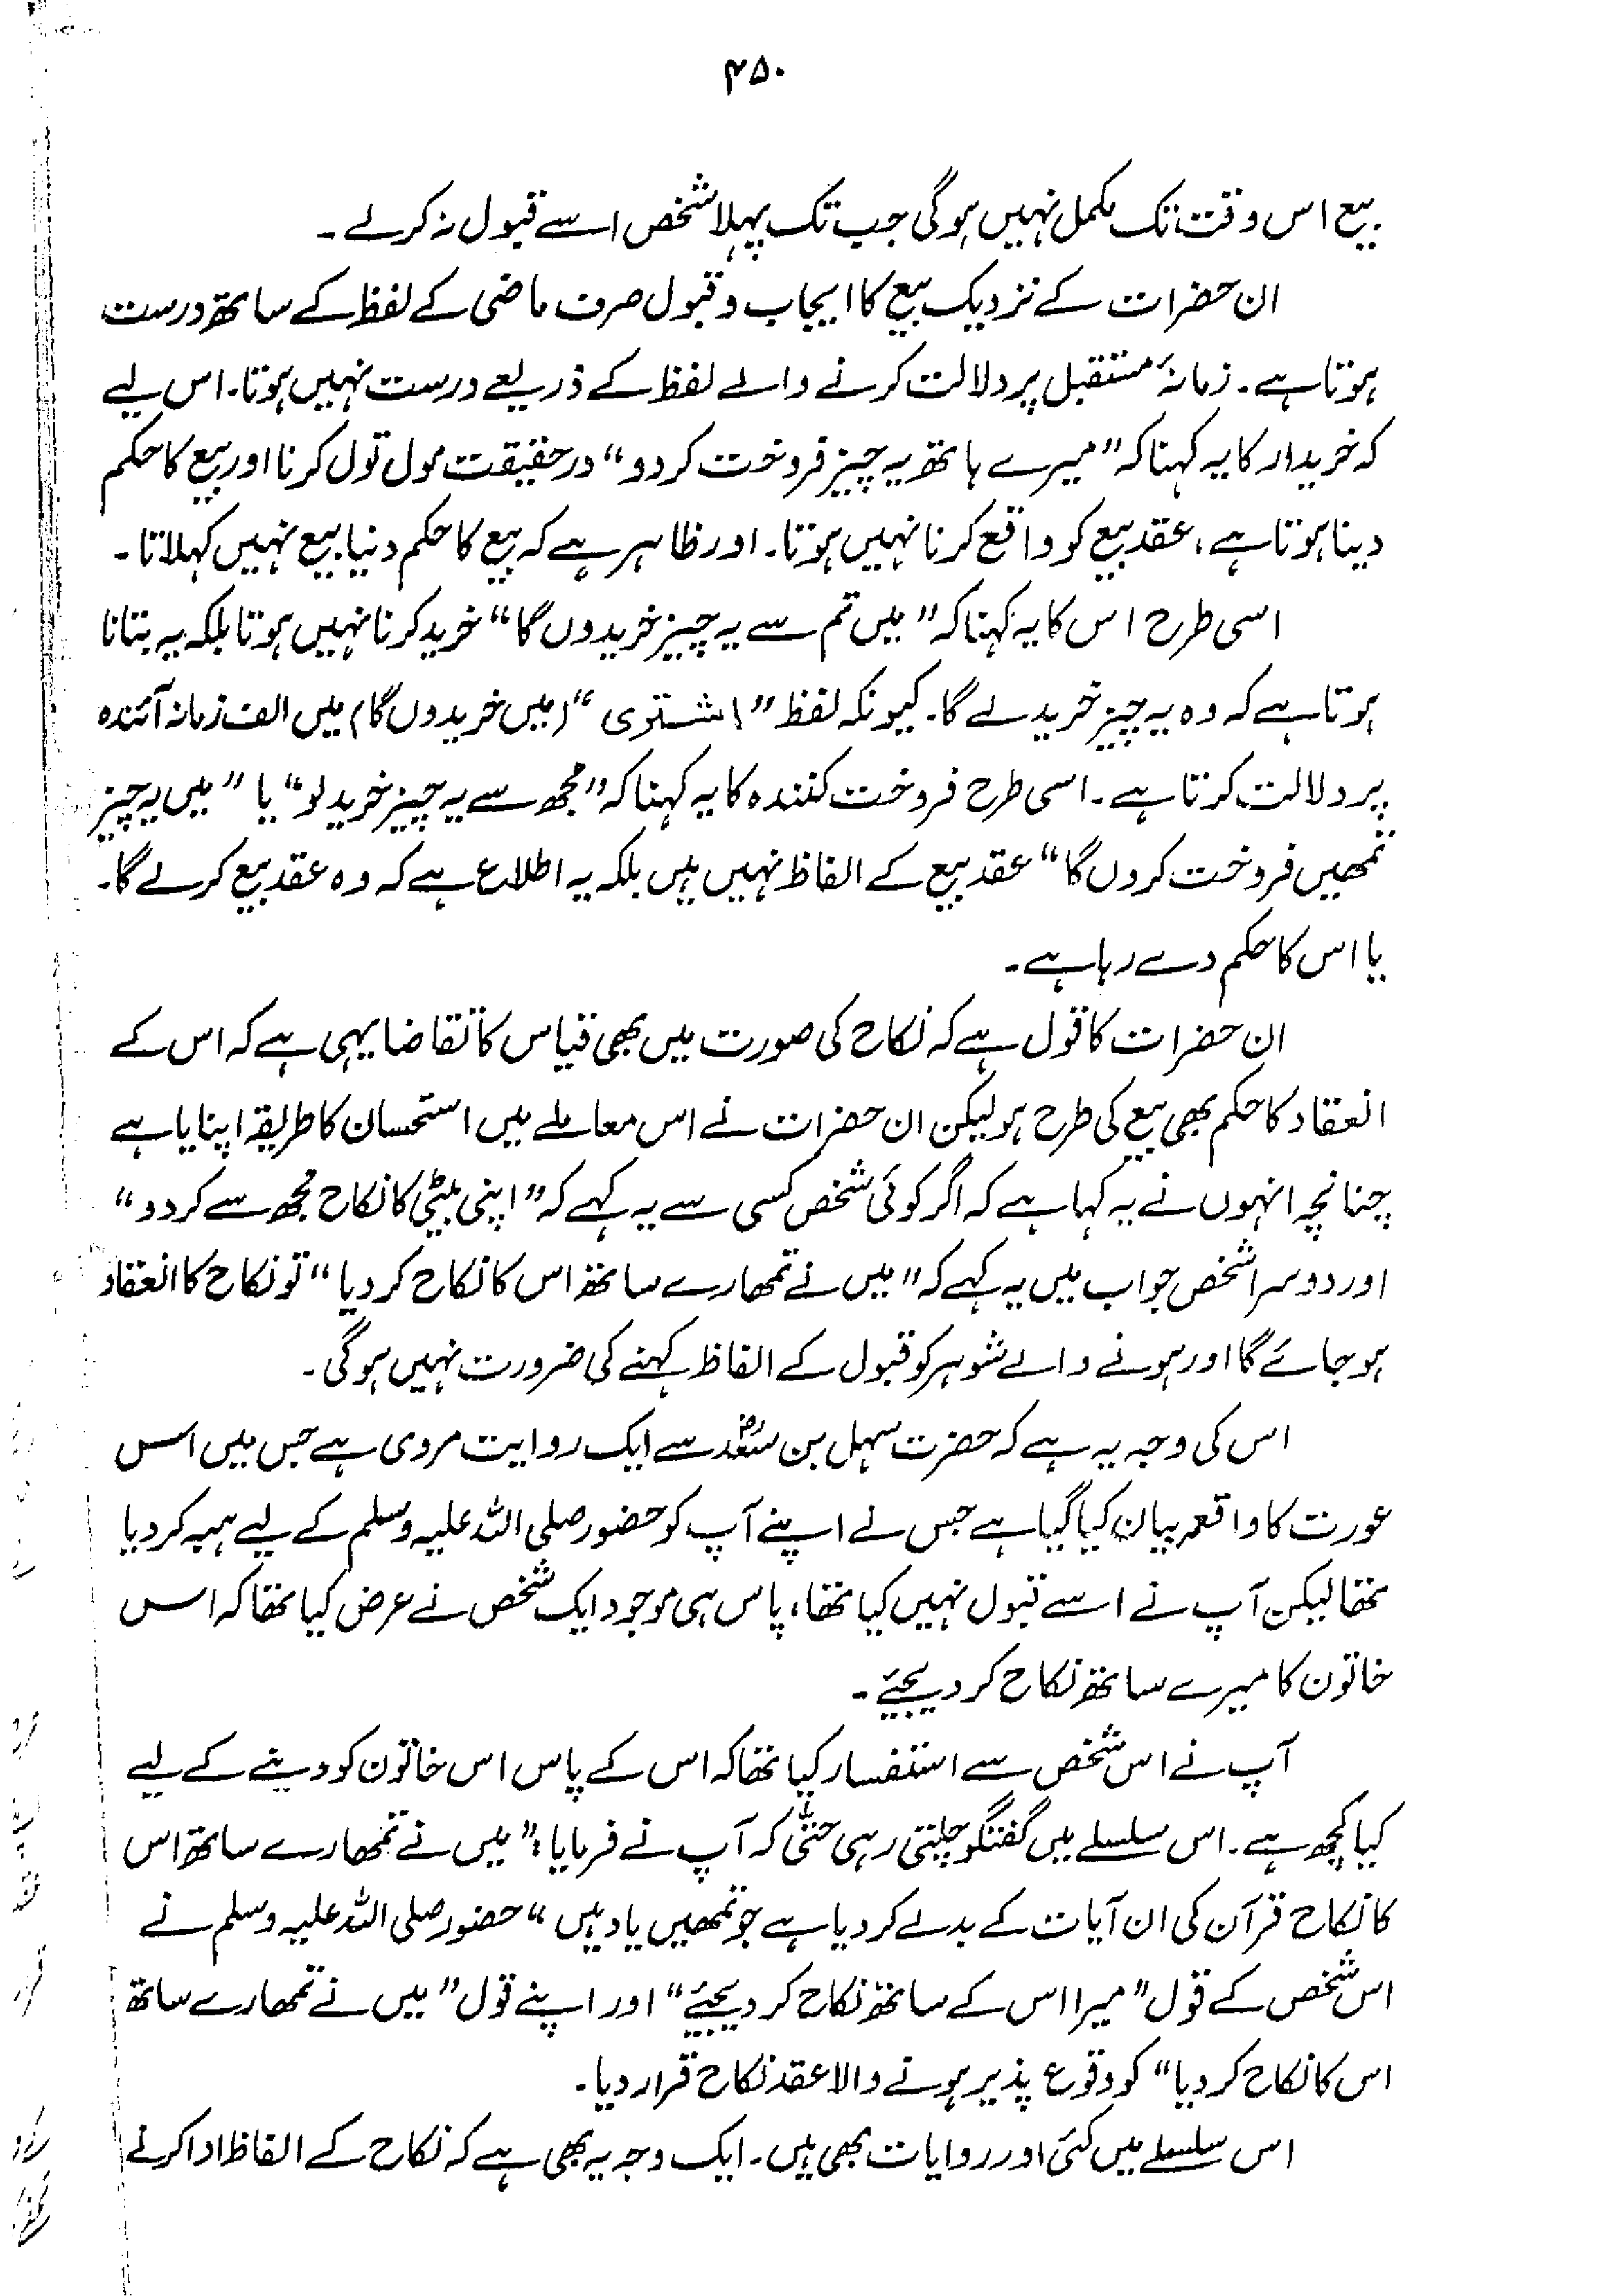 ۴۵۰
بیع اس وقت تک مکمل نہیں ہوگی جب تک پہلا شخص اسے قبول نہ کرلے۔
ان حضرات کے نزدیک بیع کا ایجاب و قبول صرف ماضی کے لفظ کے ساتھ درست
ہوتا ہے۔ زمانۂ مستقبل پر دلالت کرنے والے لفظ کے ذریعے درست نہیں ہوتا۔ اس لیے
کہ خریدار کا یہ کہنا کہ "میرے ہاتھ یہ چیز فروخت کردو" درحقیقت مول تول کرنا اور بیع کا حکم
دینا ہوتا ہے، عقد بیع کو واقع کرنا نہیں ہوتا۔ اور ظاہر ہے کہ بیع کا حکم دنیا بیع نہیں کہلاتا۔
اسی طرح اس کا یہ کہنا کہ "میں تم سے یہ چیز خریدوں گا" خرید کرنا نہیں ہوتا بلکہ یہ بتانا
ہوتا ہے کہ وہ یہ چیز خریدلے گا۔ کیونکہ لفظ "اشتری" (میں خریدوں گا) میں الف زمانہ آئندہ
پر دلالت کرتا ہے۔ اسی طرح فروخت کنندہ کا یہ کہنا کہ "مجھ سے یہ چیز خرید لو" یا "میں یہ چیز
تمھیں فروخت کردوں گا" عقد بیع کے الفاظ نہیں ہیں بلکہ یہ اطلاع ہے کہ وہ عقد بیع کرلے گا۔
یا اس کا حکم دے رہا ہے۔
ان حضرات کا قول ہے کہ نکاح کی صورت میں بھی قیاس کا تقاضا یہی ہے کہ اس کے
انعقاد کا حکم بھی بیع کی طرح ہو لیکن ان حضرات نے اس معاملے میں استحسان کا طریقہ اپنایا ہے
چنانچہ انہوں نے یہ کہا ہے کہ اگر کوئی شخص کسی سے یہ کہے کہ "اپنی بیٹی کا نکاح مجھ سے کردو"
اور دوسرا شخص جواب میں یہ کہے کہ "میں نے تمھارے ساتھ اس کا نکاح کردیا" تو نکاح کا انعقاد
ہوجائے گا اور ہونے والے شوہر کو قبول کے الفاظ کہنے کی ضرورت نہیں ہوگی۔
اس کی وجہ یہ ہے کہ حضرت سہل بن سعدؓ سے ایک روایت مروی ہے جس میں اس
عورت کا واقعہ بیان کیا گیا ہے جس نے اپنے آپ کو حضور صلی اللہ علیہ وسلم کے لیے ہبہ کردیا
تھا لیکن آپ نے اسے قبول نہیں کیا تھا، پاس ہی موجود ایک شخص نے عرض کیا تھا کہ اس
خاتون کا میرے ساتھ نکاح کردیجیئے۔
آپ نے اس شخص سے استفسار کیا تھا کہ اس کے پاس اس خاتون کو دینے کے لیے
کیا کچھ ہے۔ اس سلسلے میں گفتگو چلتی رہی حتیٰ کہ آپ نے فرمایا: "میں نے تمھارے ساتھ اس
کا نکاح قرآن کی ان آیات کے بدلے کردیا ہے جو تمھیں یاد ہیں" حضور صلی اللہ علیہ وسلم نے
اس شخص کے قول "میرا اس کے ساتھ نکاح کردیجیئے" اور اپنے قول "میں نے تمھارے ساتھ
اس کا نکاح کردیا" کو وقوع پذیر ہونے والا عقد نکاح قرار دیا۔
اس سلسلے میں کئی اور روایات بھی ہیں۔ ایک وجہ یہ بھی ہے کہ نکاح کے الفاظ ادا کرنے